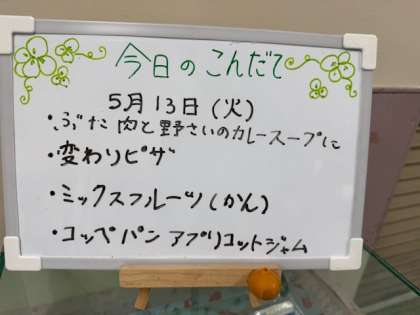 今日のこんだて
5月13日(火)
・ぶた肉と野さいのカレースープに
・変わりピザ
・ミックスフルーツ(かん)
・コッペパン アプリコットジャム